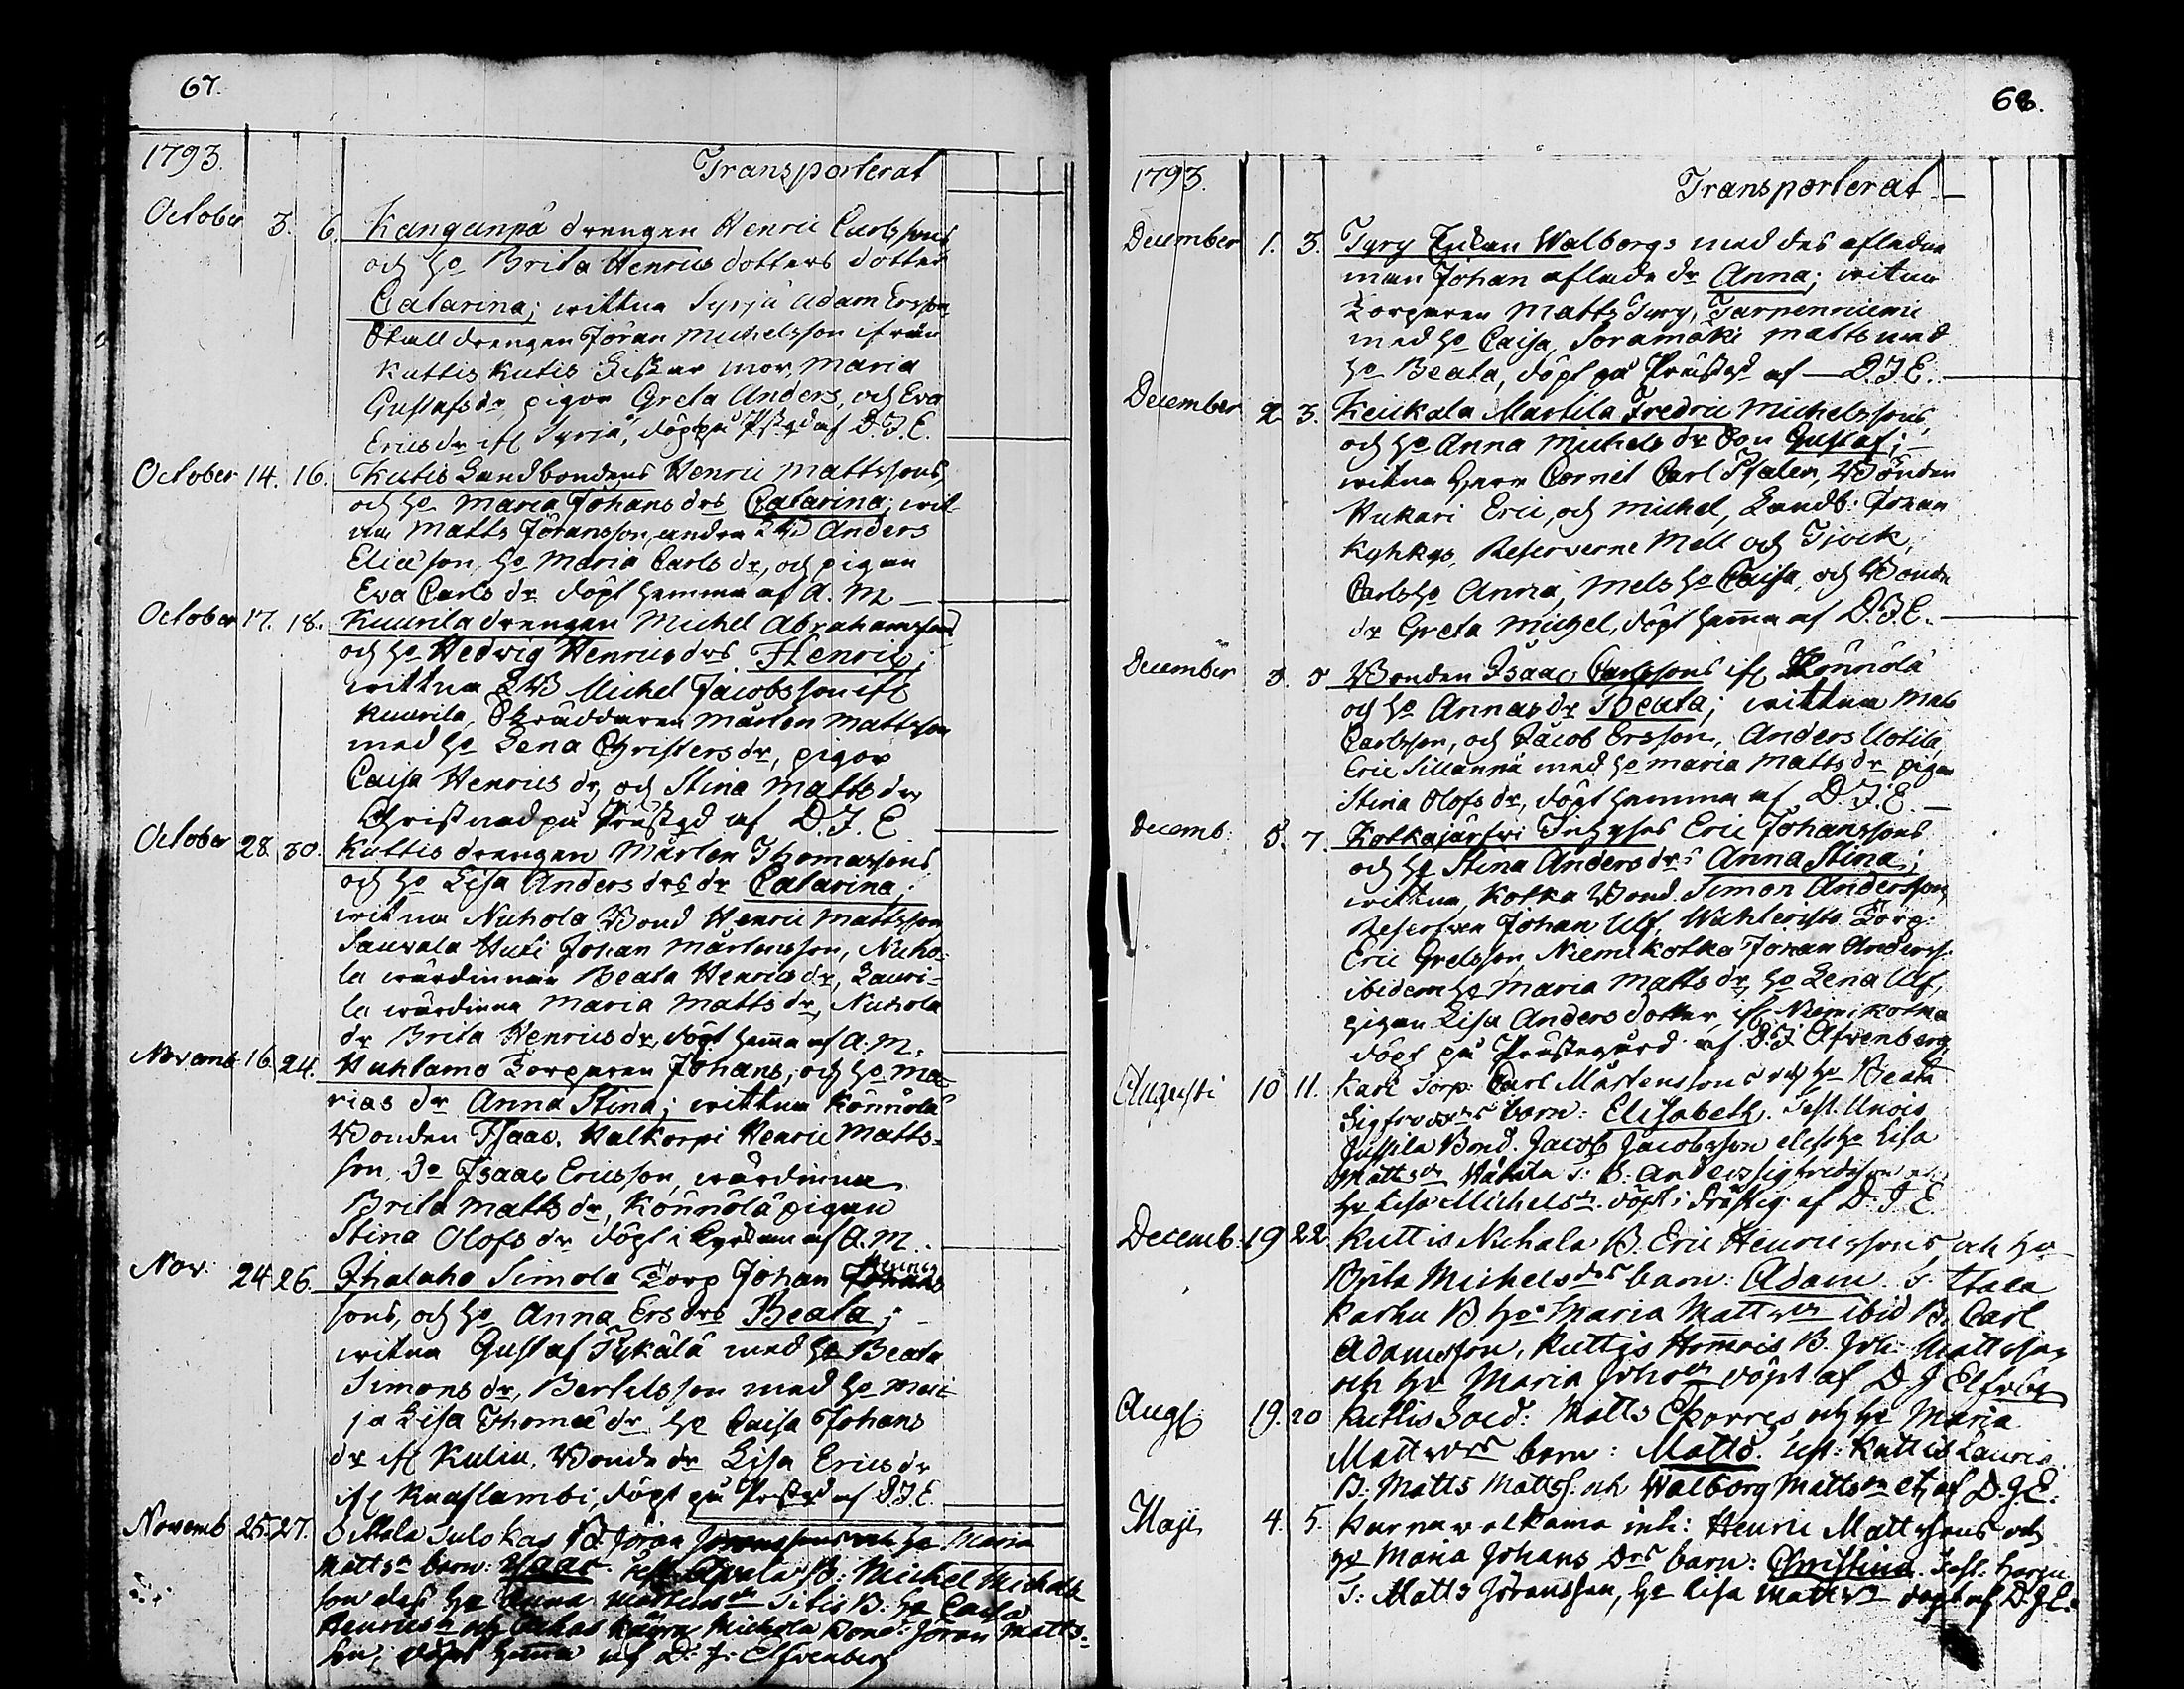 67.
1793.
Transporterat
October 3. 6. Kanganpä drengen Henric Carlssons
och ho Brita Henrics dotters dotter
Catarina; wittna Syrjä Adam Ersson,
Stalldrengen Jöran Michelsson ifrån
Kuttis Kutis mor, Maria
Gustafs dr pigor Greta Anders, och Eva
Erics dr ifl Syrjä, döpt på Pstgd af D.J.E.
October 14. 16. Kutis Landbondens Henric Mattssons
och ho Maria Johans drs Catarina; wit
na Matts Jöransson, Anders
Eliæson, ho Maria Carls dr, och pigan
Eva Carls dr döpt hemma af A. M
October 17. 18. Kuurila drengen Michel Abrahamssons
och ho Hedwig Henrics drs Henric;
wittna LB Michel Jacobsson ifl
Kuurila, Skräddaren Mårten Mattsson
med ho Lena Christers dr, pigor
Caisa Henrics dr och Stina Matts dr
Christnad på Prästgd af D.J.E
October 28. 30. Kuttis drengen Mårten Thomassons
och ho Lisa Anders drs dr Catarina;
witna Nuhola Bond Henric Mattsson
Sauvala Huti Johan Mårtensson, Nuho-
la wärdinnan Beata Henrics dr, Lauri-
la wärdinna Maria Matts dr, Nuhola
dr Brita Henrics dr, döpt hema af A.M.
Novemb 16. 24. Huhtamo Torparen Johans, och ho Ma-
rias dr Anna Stina; wittna Könnölä
Bonden Isaac, Halkorpi Henric Matts-
son, Do Isaac Ericsson, wärdinna
Brita Matts dr, Könnölä pigan
Stina Olofs dr döpt i Kyrckan af A.M.
Nov: 24 26. Ihalaho Simola Torp Johan Henrics
sons, och ho Anna Ers drs Beata;
witna Gustaf Pykälä med ho Beata
Simons dr, Bertelsson med ho Mai-
ja Lisa Thomæ dr ho Caisa Johans
dr ifl Kuliu, Bonde dr Lisa Erics dr
ifl Kuaslambi, döpt på Prstgd af D.J.E.
Novemb 25. 27. Sulokas B. Jöran Jöranssons och ho Maria
Matts dr barn: Isaac. Test. B: Michel Michels
son des ho Anna Mårtens dr B: ho Caisa
Henrics dr och Nuhola Bond: Jöran Matts-
son, döpt hemma af D: J: Elfvenberg
68.
1793.
Transporterat
December 1. 3. Tyry Enkan Walborgs med des afledne
man Johan aflade dr Anna; witna
Torparen Matts Tyry, Tarpenniemi
med ho Caisa, Soramäki Matts med
ho Beata, döpt på Prästgd af D.J.E.
December 2. 3. Keickala Martila Fredric Michelssons,
och ho Anna Michels dr Son Gustaf;
witna Herr Cornet Carl Pfaler, Bönder
Hukari Eric, och Michel, Landb: Johan
Kyhkys, Reserverne Mell och Tjock,
Carls ho Anna, Mels ho Caisa, och Bonde
dr Greta Michel, döpt hema af D.J.E.
December 3. 5 Bonden Isaac Carlssons ifl Könnölä
och ho Annas dr Beata; wittna Mats
Carlsson, och Jacob Ersson, Anders Uotila,
Eric Sillanpä med ho Maria Matts dr pigan
Stina Olofs dr, döpt hemma af D.J.E.
Decemb: 5. 7. Kotkajärfwi Inhyses Eric Johanssons
och ho Stina Anders drs Anna Stina;
wittna, Kotka Bond Simon Andersson,
Reserven Johan Ulf, Wahleristo Torp:
Eric Grelsson, Niemikotka Johan Anderss:
ibidem ho Maria Matts dr, ho Lena Ulf,
pigan Lisa Anders dotter ifl Niemikotka
döpt på Prästegård af D.J Elfvenberg
Augusti 10 11. Kari Torp: Carl Mårtenssons och ho Beata
Sigfreds drs barn: Elisabeth. Test. Unois
Jussila Bond. Jacob Jacobsson des ho Lisa
Matts dr Wähälä T: B: Anders Sigfredsson och
ho Lisa Michels dr. döpt i Prästg: af D. J. E
Decemb. 19 22. Kuttis Nuhala B. Eric Henricssons och ho
Brita Michels drs barn: Adam. T. Ttala
Karhu B. ho Maria Matts dr ibid B. Carl
Adamsson, Kuttis Homois B. Joh: Mattsson
och ho Maria Johs dr döpt af D J Elfvbg
Augl 19. 20 Kuttis Sold: Matts Eporres och ho Maria
Matts drs barn: Matts. Test: Kuttis Lauris
B: Matts Matts. och Walborg Matts dr etc af D.J.E.
Maji 4. 5. Karnawalkama inh: Henric Mattssons och
ho Maria Johans Drs barn: Christina. Test.
T: Matts Jöransson, ho Lisa Matts dr döpt af D.J.E.